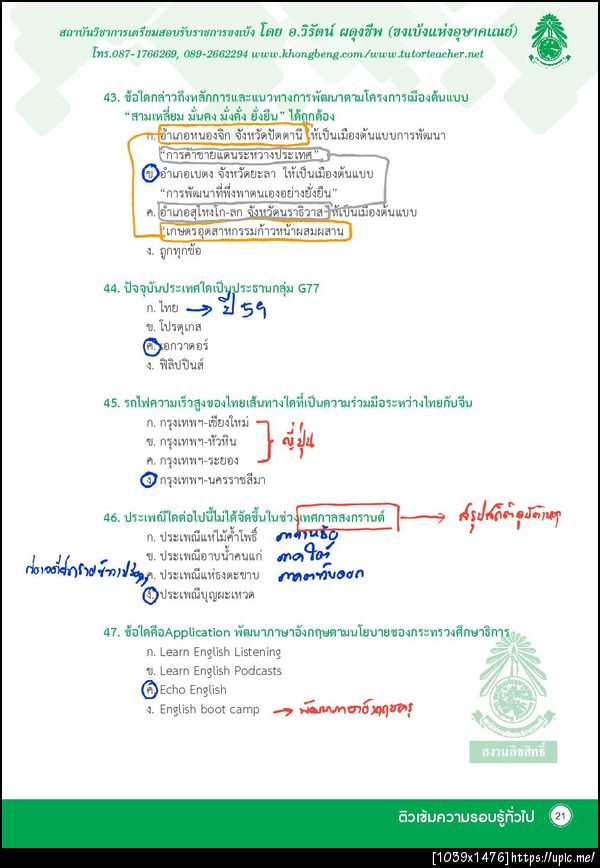 สถาบันวิชาการเตรียมสอบรับราชการขงเบ้ง โดย อ.วิรัตน์ ผดุงชีพ (ขงเบ้งแห่งอุษาคเณย์)
โทร.087-1766269, 089-2662294 www.khongbeng.com/www.tutorteacher.net
43. ข้อใดกล่าวถึงหลักการและแนวทางการพัฒนาตามโครงการเมืองต้นแบบ
“สามเหลี่ยม มั่นคง มั่งคั่ง ยั่งยืน” ได้ถูกต้อง
ก. อำเภอหนองจิก จังหวัดปัตตานี ให้เป็นเมืองต้นแบบการพัฒนา
“การค้าชายแดนระหว่างประเทศ”
ข. อำเภอเบตง จังหวัดยะลา ให้เป็นเมืองต้นแบบ
“การพัฒนาที่พึ่งพาตนเองอย่างยั่งยืน”
ค. อำเภอสุไหงโก-ลก จังหวัดนราธิวาส ให้เป็นเมืองต้นแบบ
“เกษตรอุตสาหกรรมก้าวหน้าผสมผสาน
ง. ถูกทุกข้อ
44. ปัจจุบันประเทศใดเป็นประธานกลุ่ม G77
ก. ไทย → ปี 59
ข. โปรตุเกส
ค. เอกวาดอร์
ง. ฟิลิปปินส์
45. รถไฟความเร็วสูงของไทยเส้นทางใดที่เป็นความร่วมมือระหว่างไทยกับจีน
ก. กรุงเทพฯ-เชียงใหม่
ข. กรุงเทพฯ-หัวหิน
ค. กรุงเทพฯ-ระยอง
ญี่ปุ่น
ง. กรุงเทพฯ-นครราชสีมา
46. ประเพณีใดต่อไปนี้ไม่ได้จัดขึ้นในช่วงเทศกาลสงกรานต์
ก. ประเพณีแห่ไม้ค้ำโพธิ์ ภาคเหนือ
ข. ประเพณีอาบน้ำคนแก่ ภาคใต้
ค. ประเพณีแห่ธงตะขาบ ภาคตะวันออก
ง. ประเพณีบุญผะเหวด
47. ข้อใดคือApplication พัฒนาภาษาอังกฤษตามนโยบายของกระทรวงศึกษาธิการ
ก. Learn English Listening
ข. Learn English Podcasts
ค. Echo English
ง. English boot camp → พัฒนาภาษาอังกฤษครู
สงวนลิขสิทธิ์
ติวเข้มความรอบรู้ทั่วไป 21
[1039x1476]https://upic.me/